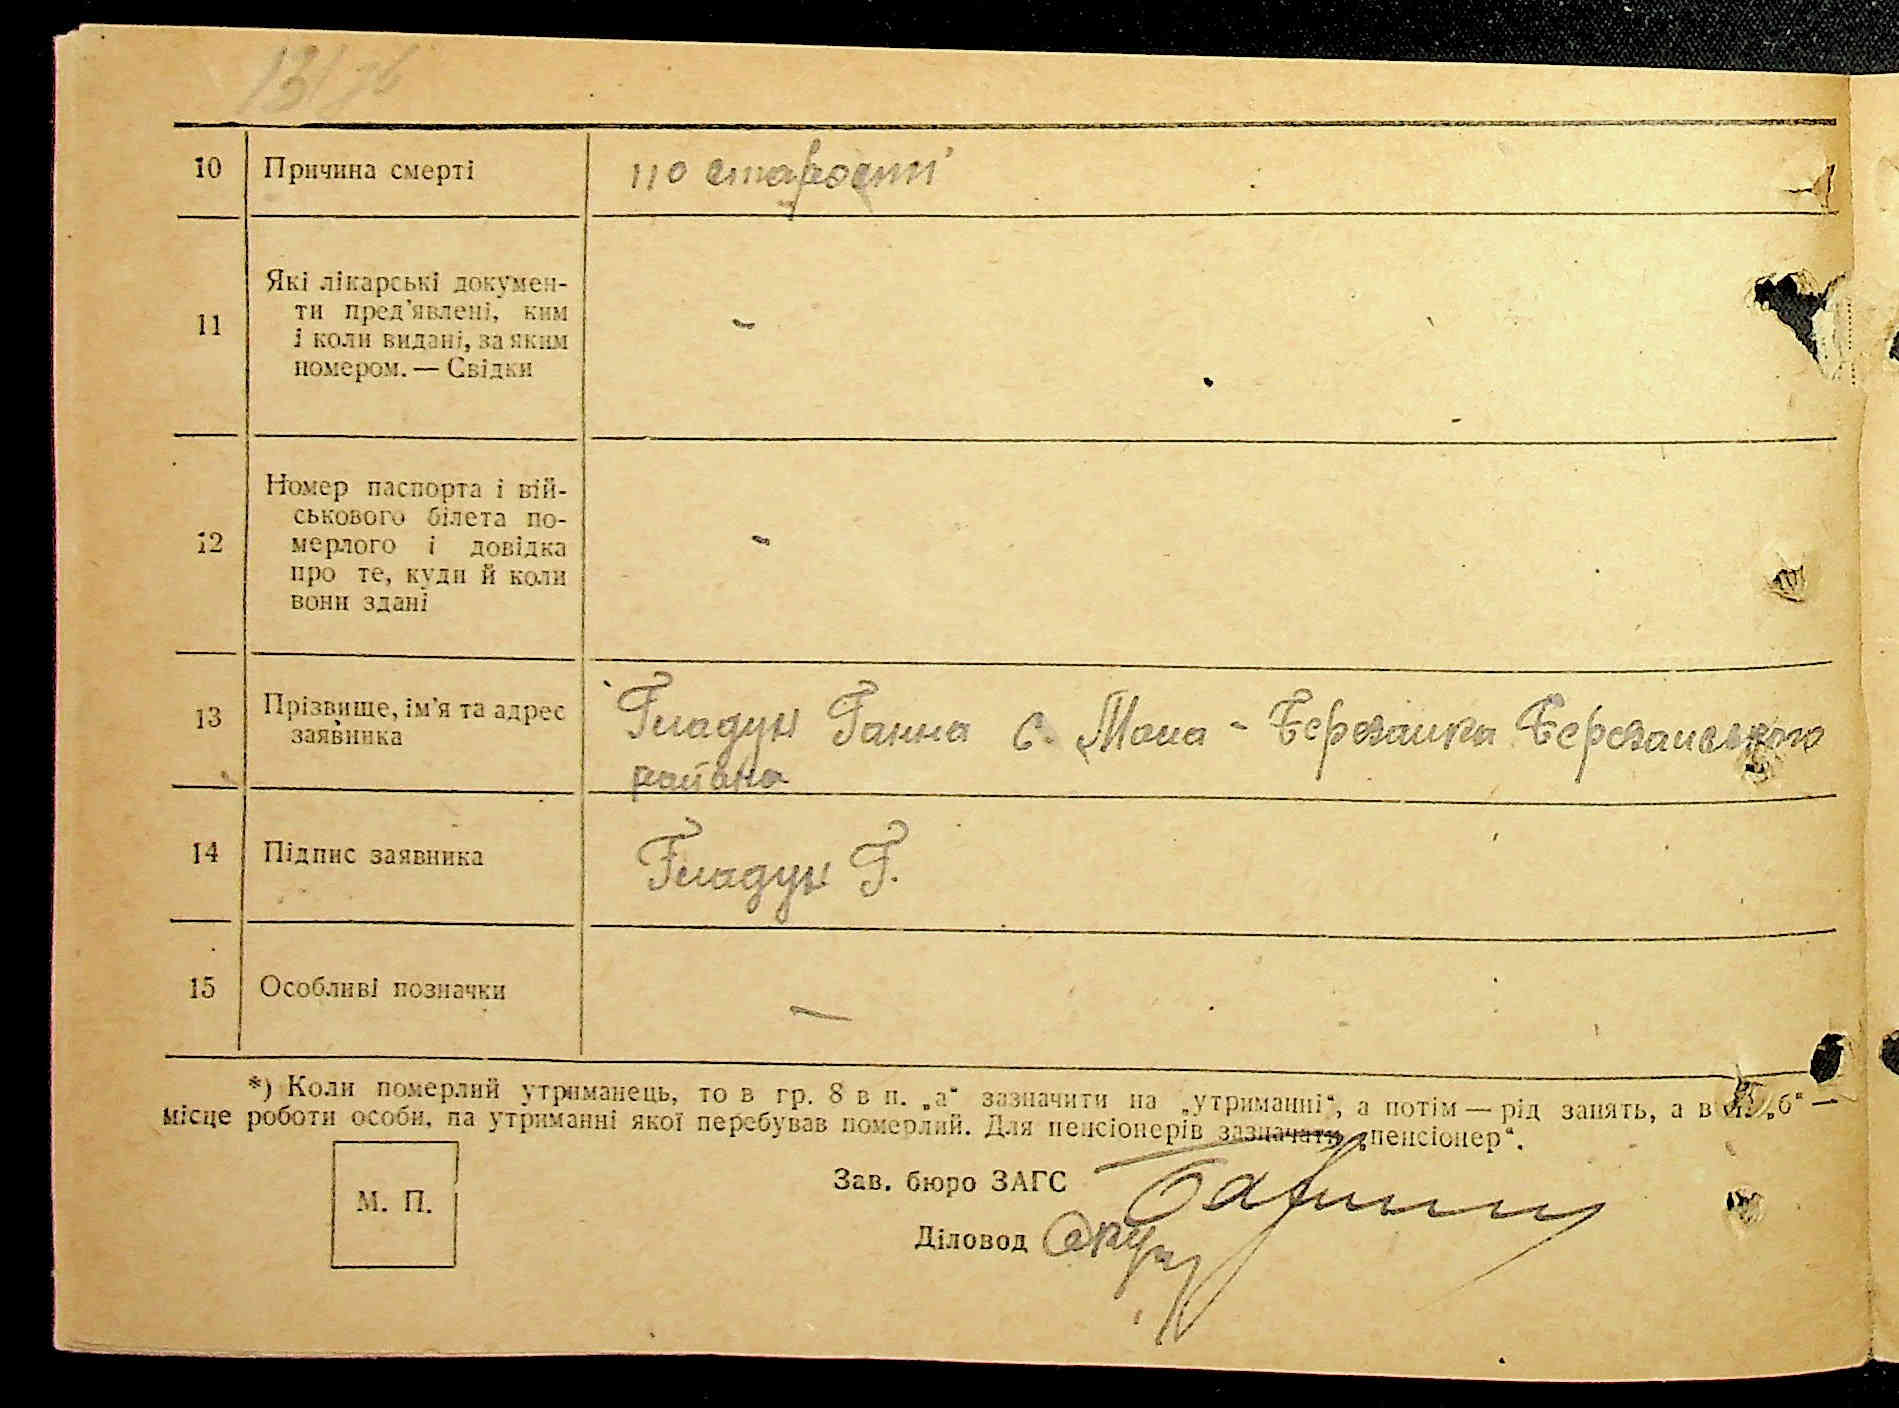 10 Причина смерті по старості
11 Які лікарські докумен-
ти пред'явлені, ким
і коли видані, за яким
номером. — Свідки -
12 Номер паспорта і вій-
ськового білета по-
мерлого і довідка
про те, куди й коли
вони здані -
13 Прізвище, ім'я та адрес
заявника
Гладун Ганна с. Мала - Березанка Березанського
района
14 Підпис заявника Гладун Г.
15 Особливі позначки —
*) Коли померлий утриманець, то в гр. 8 в п. „а“ зазначити на „утриманні“, а потім — рід занять, а в п. „б“ —
місце роботи особи, на утриманні якої перебував померлий. Для пенсіонерів зазначати „пенсіонер“.
М. П.
Зав. бюро ЗАГС
Діловод